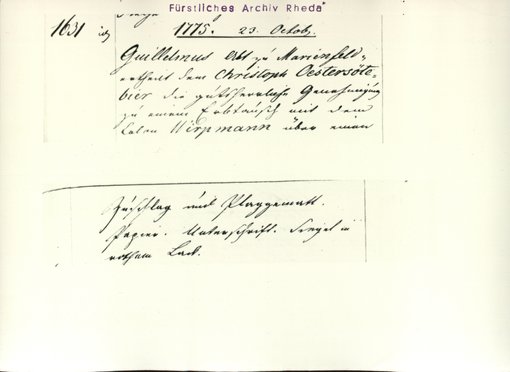 Fürstliches Archiv Rheda
1631
1775. 23. Octob.
Guillelmus Abt zu Marienfeld
ertheilt dem Christoph Oestersöte-
bier die gutsherrliche Genehmigung
zu einem Erbtausch mit dem
Colon Wirpmann über einen
Zuschlag und Plaggematt.
Papier. Unterschrift. Siegel in
rothem Lack.